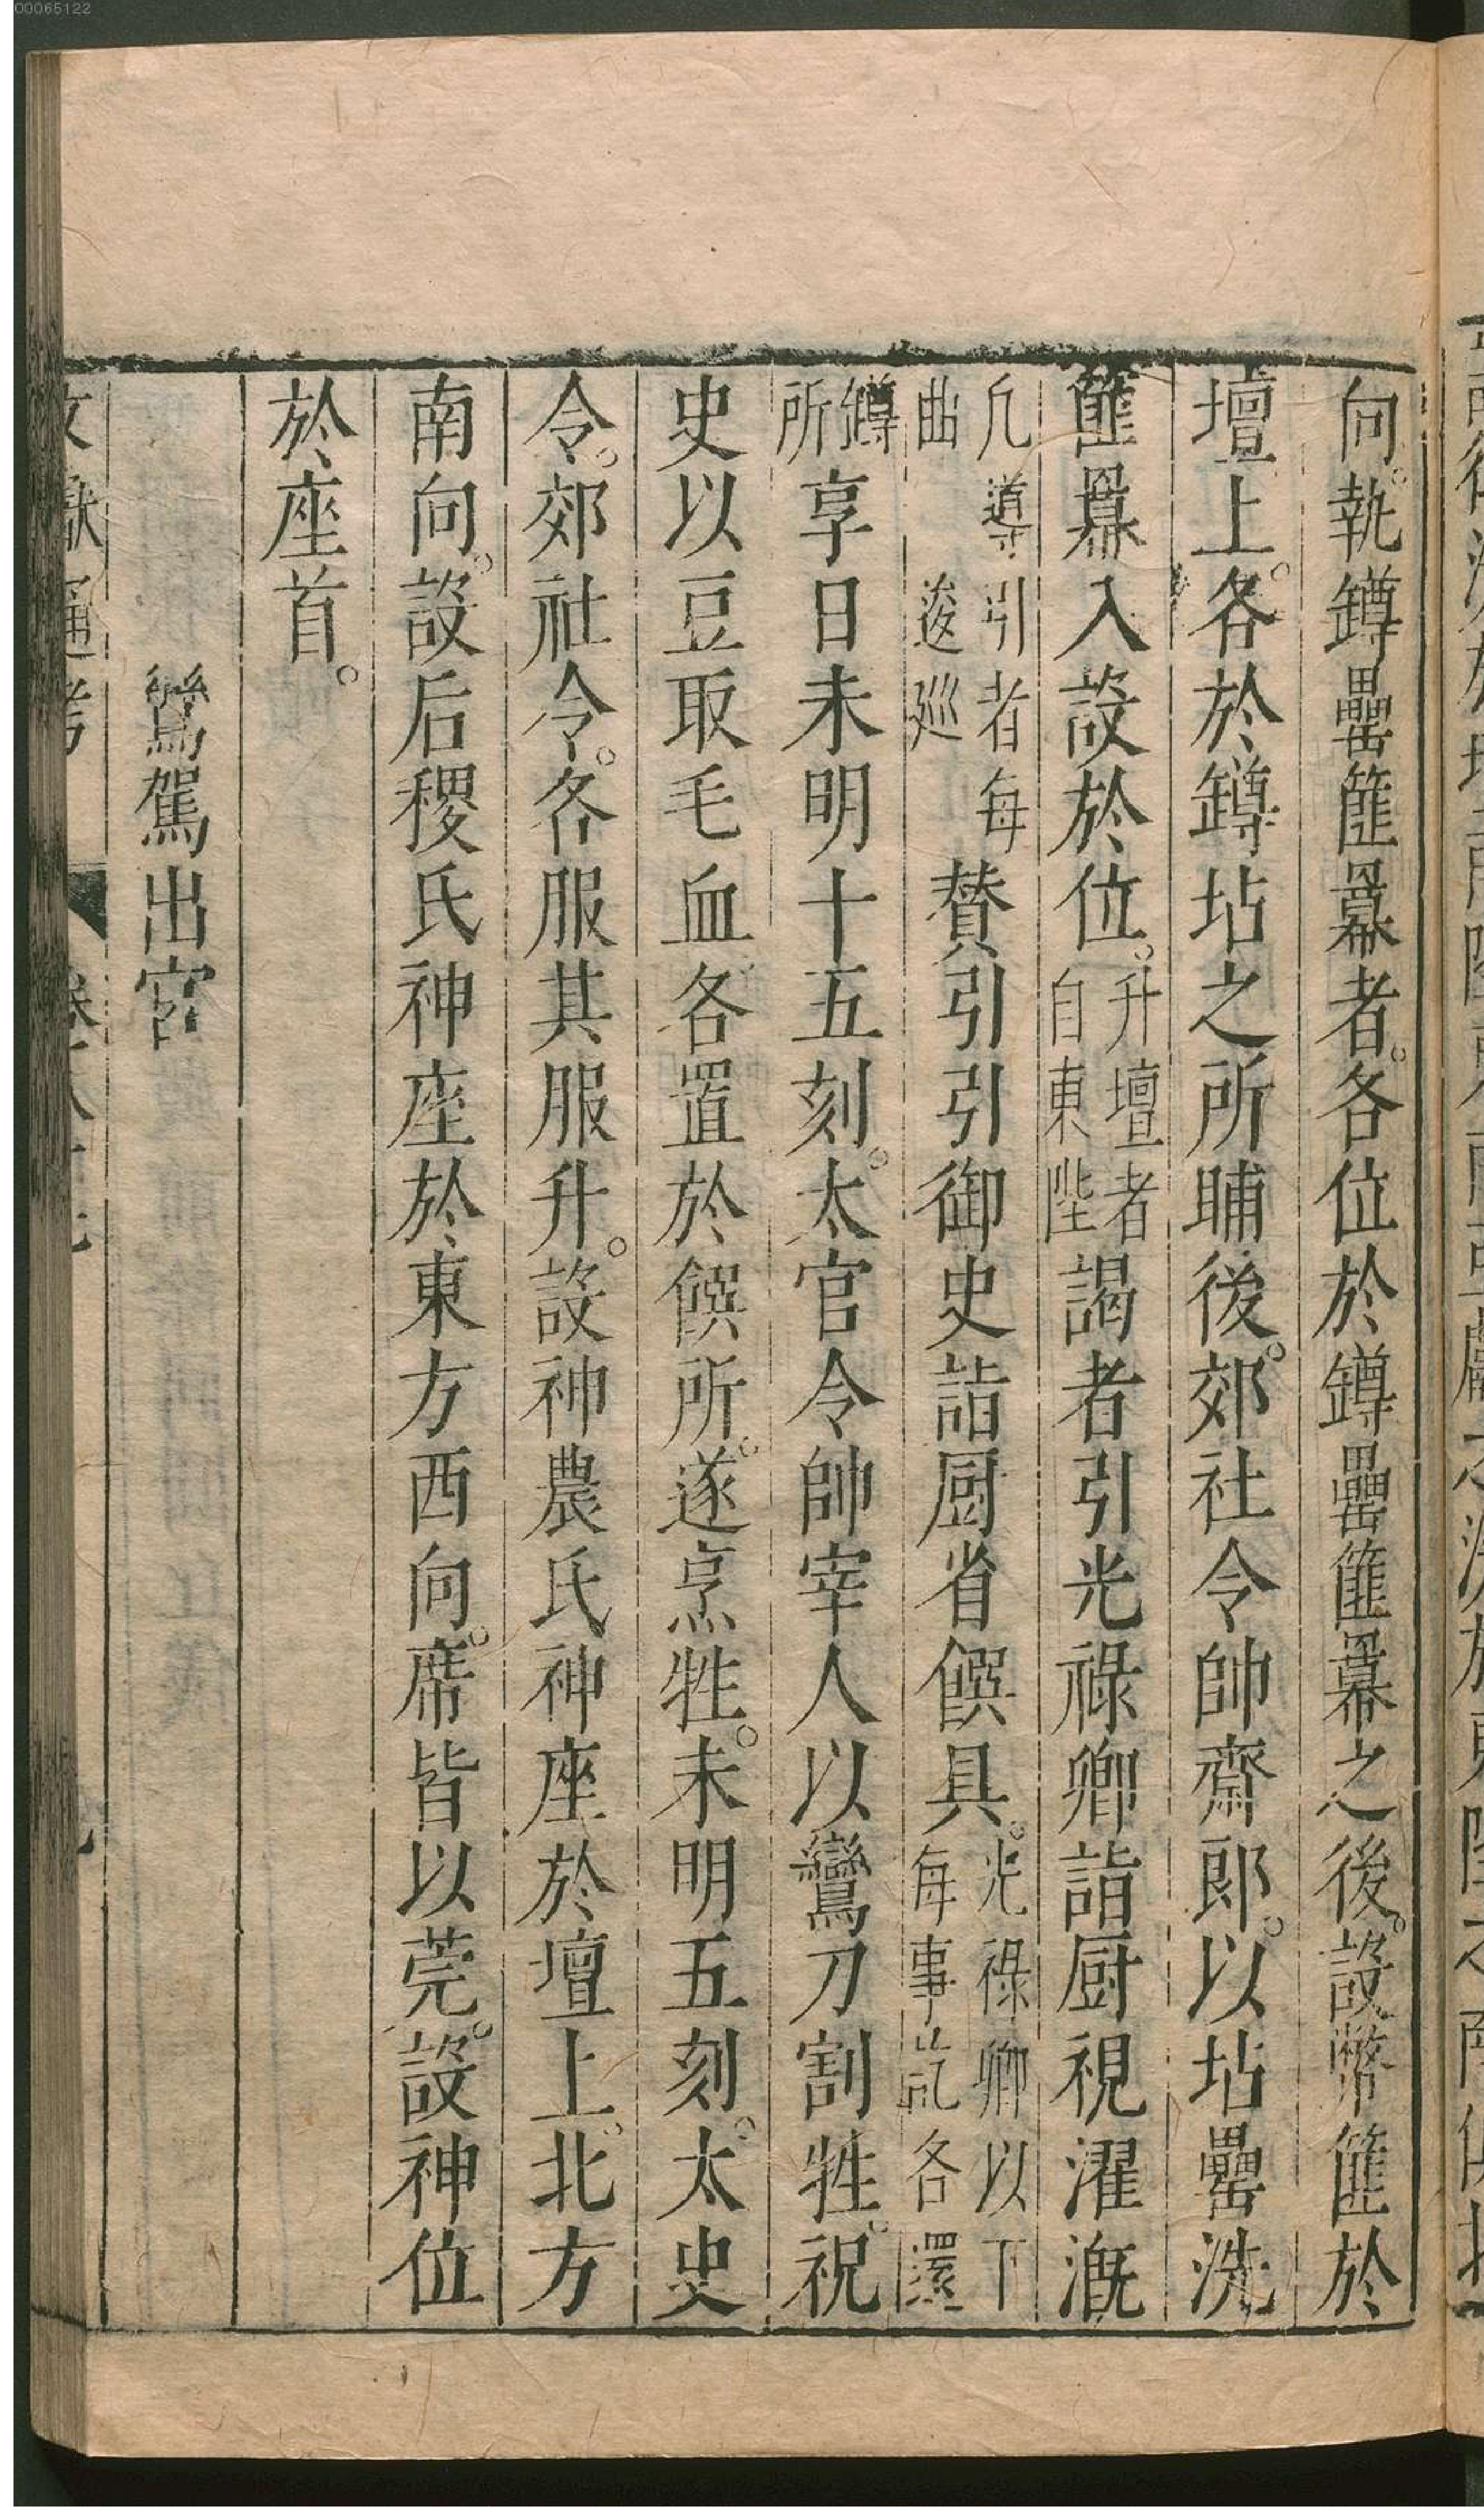 00065122
向。執罇罍篚冪者。各位於罇罍篚冪之後。設幣篚於
壇上。各於罇坫之所晡後。郊社令帥齋郎。以坫罍洗
篚冪入設於位。升壇者自東陛謁者引光祿卿詣厨視濯溉
凡導引者每曲逡巡贊引引御史詣厨省饌具。光祿卿以下每事訖各還
罇所享日未明十五刻。太官令帥宰人以鸞刀割牲。祝
史以豆取毛血各置於饌所。遂烹牲。未明五刻。太史
令。郊社令。各服其服升。設神農氏神座於壇上。北方
南向。設后稷氏神座於東方西向。席皆以莞。設神位
於座首。
鸞駕出宮
文獻通考